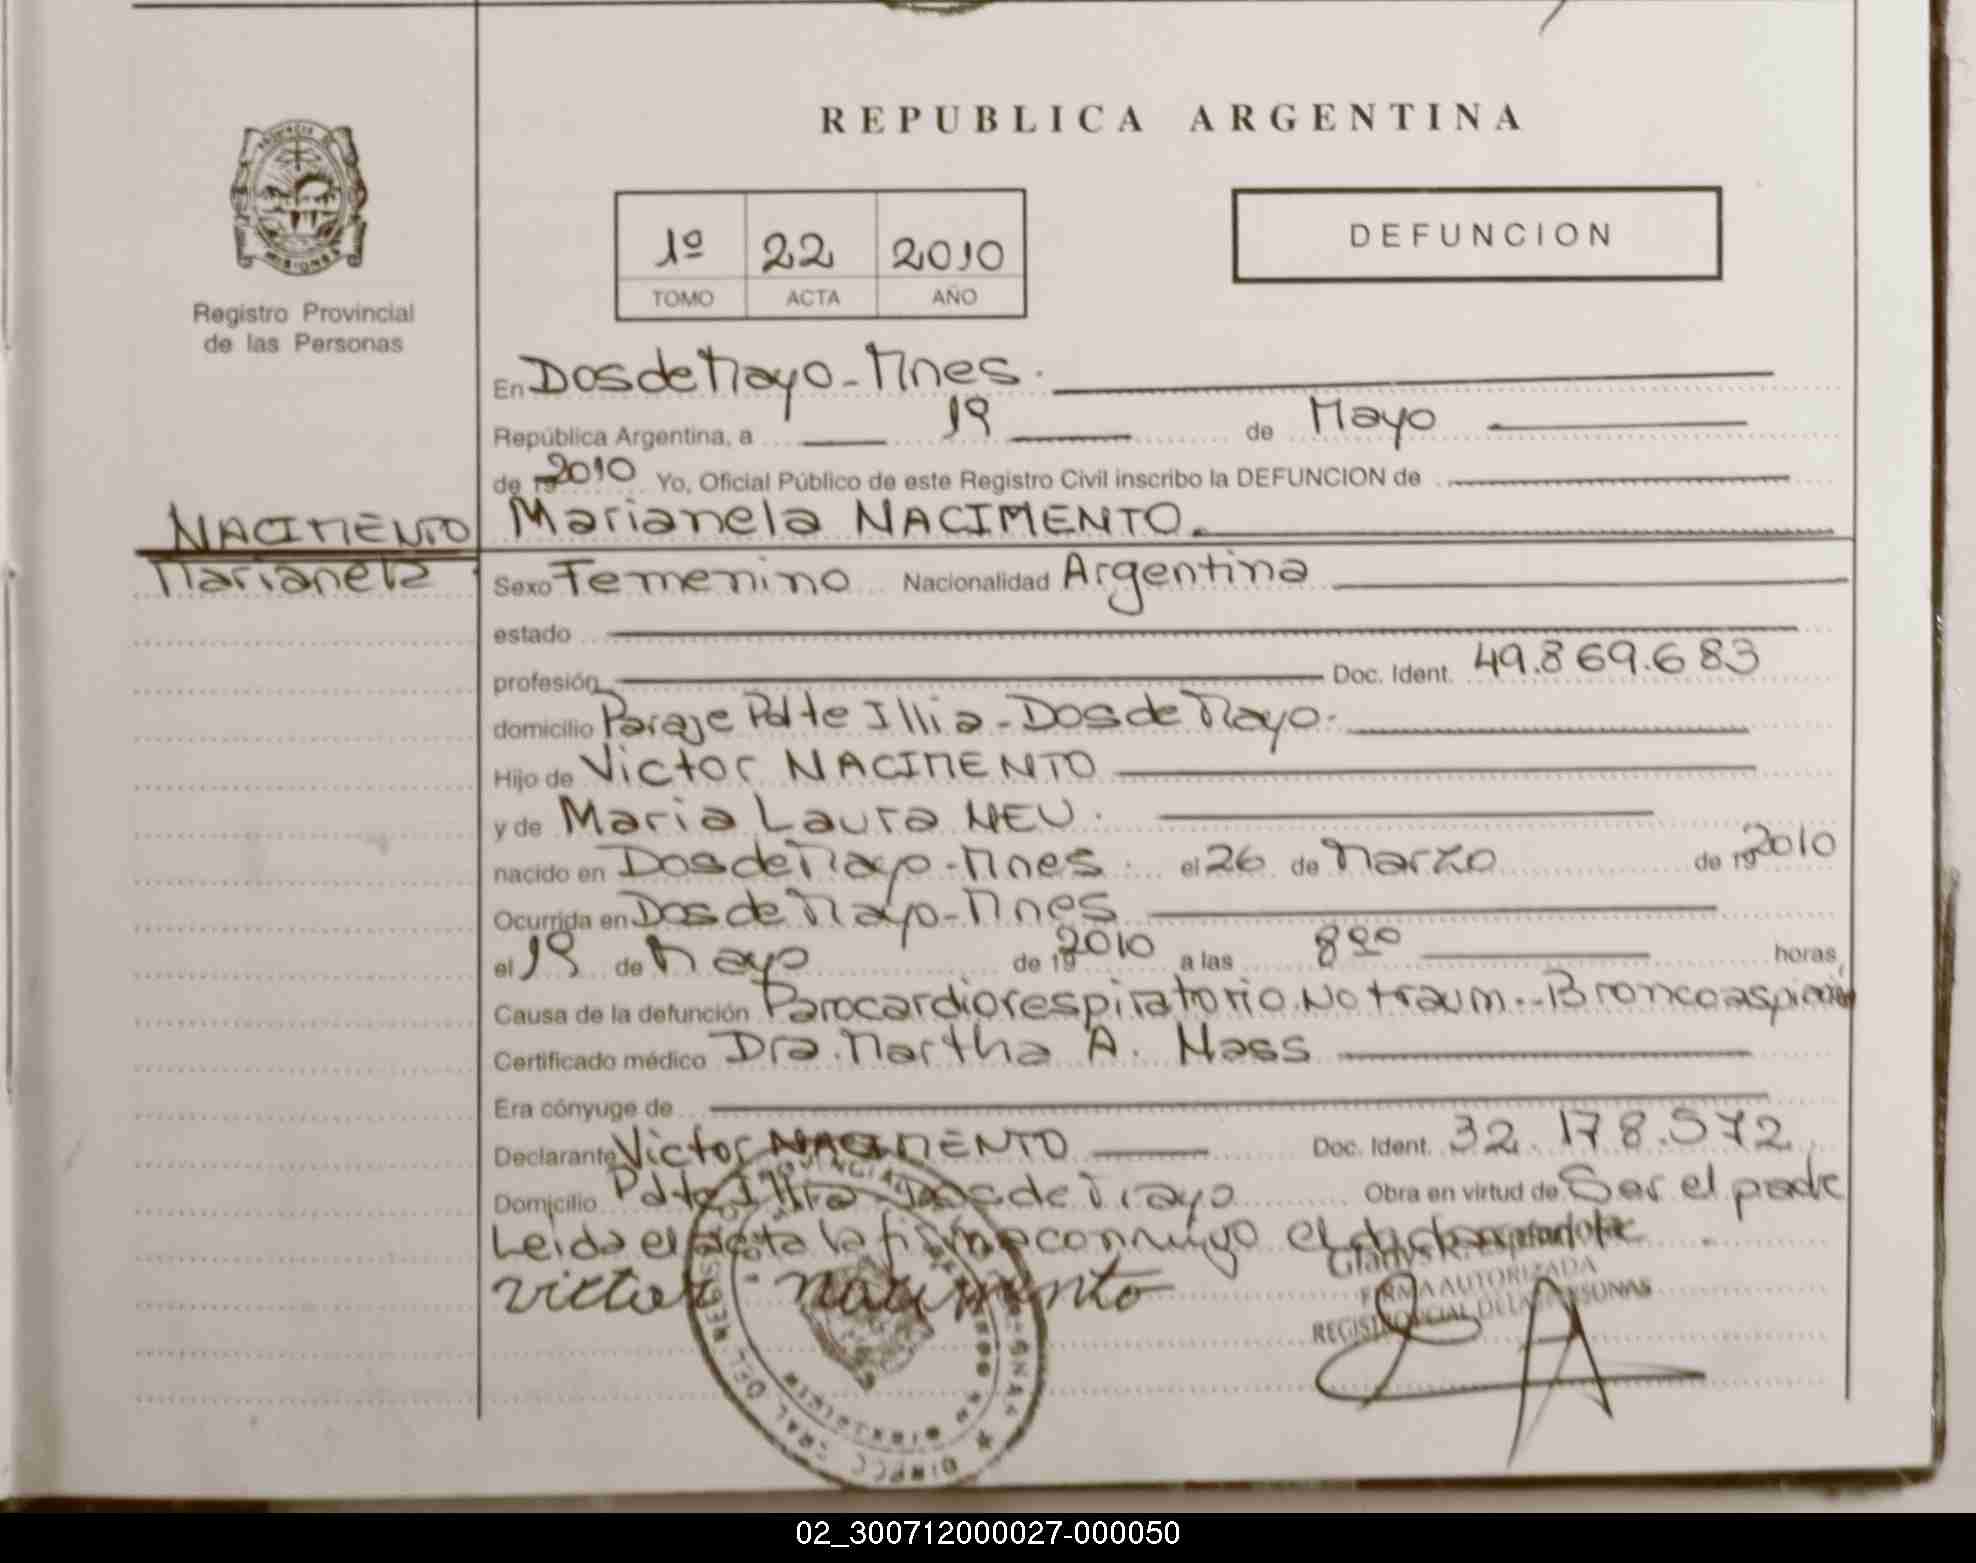 REPUBLICA ARGENTINA
PROVINCIA DE
MISIONES
Registro Provincial
de las Personas
1º 22 2010
TOMO ACTA AÑO
DEFUNCION
En Dos de Mayo - Mnes.
República Argentina, a 19 de Mayo
de 19 2010 Yo, Oficial Público de este Registro Civil inscribo la DEFUNCION de
NACIMENTO Marianela NACIMENTO.
Marianela Sexo Femenino Nacionalidad Argentina
estado
profesión Doc. Ident. 49.869.683
domicilio Paraje Pdte Illia - Dos de Mayo.
Hijo de Victor NACIMENTO
y de Maria Laura NEU.
nacido en Dos de Mayo - Mnes. el 26 de Marzo de 19 2010
Ocurrida en Dos de Mayo - Mnes
el 19 de Mayo de 19 2010 a las 8 00 horas,
Causa de la defunción Parocardiorespiratorio. No traum.-
Certificado médico Dra. Martha A.
Era cónyuge de
Declarante Victor NACIMENTO Doc. Ident. 32.178.572
Domicilio Pdte Illia - Dos de Mayo Obra en virtud de Ser el padre
Leida el acta la firma conmigo el declarante
victor nacimento
FIRMA AUTORIZADA
REGISTRO PROVINCIAL DE LAS PERSONAS
02_300712000027-000050